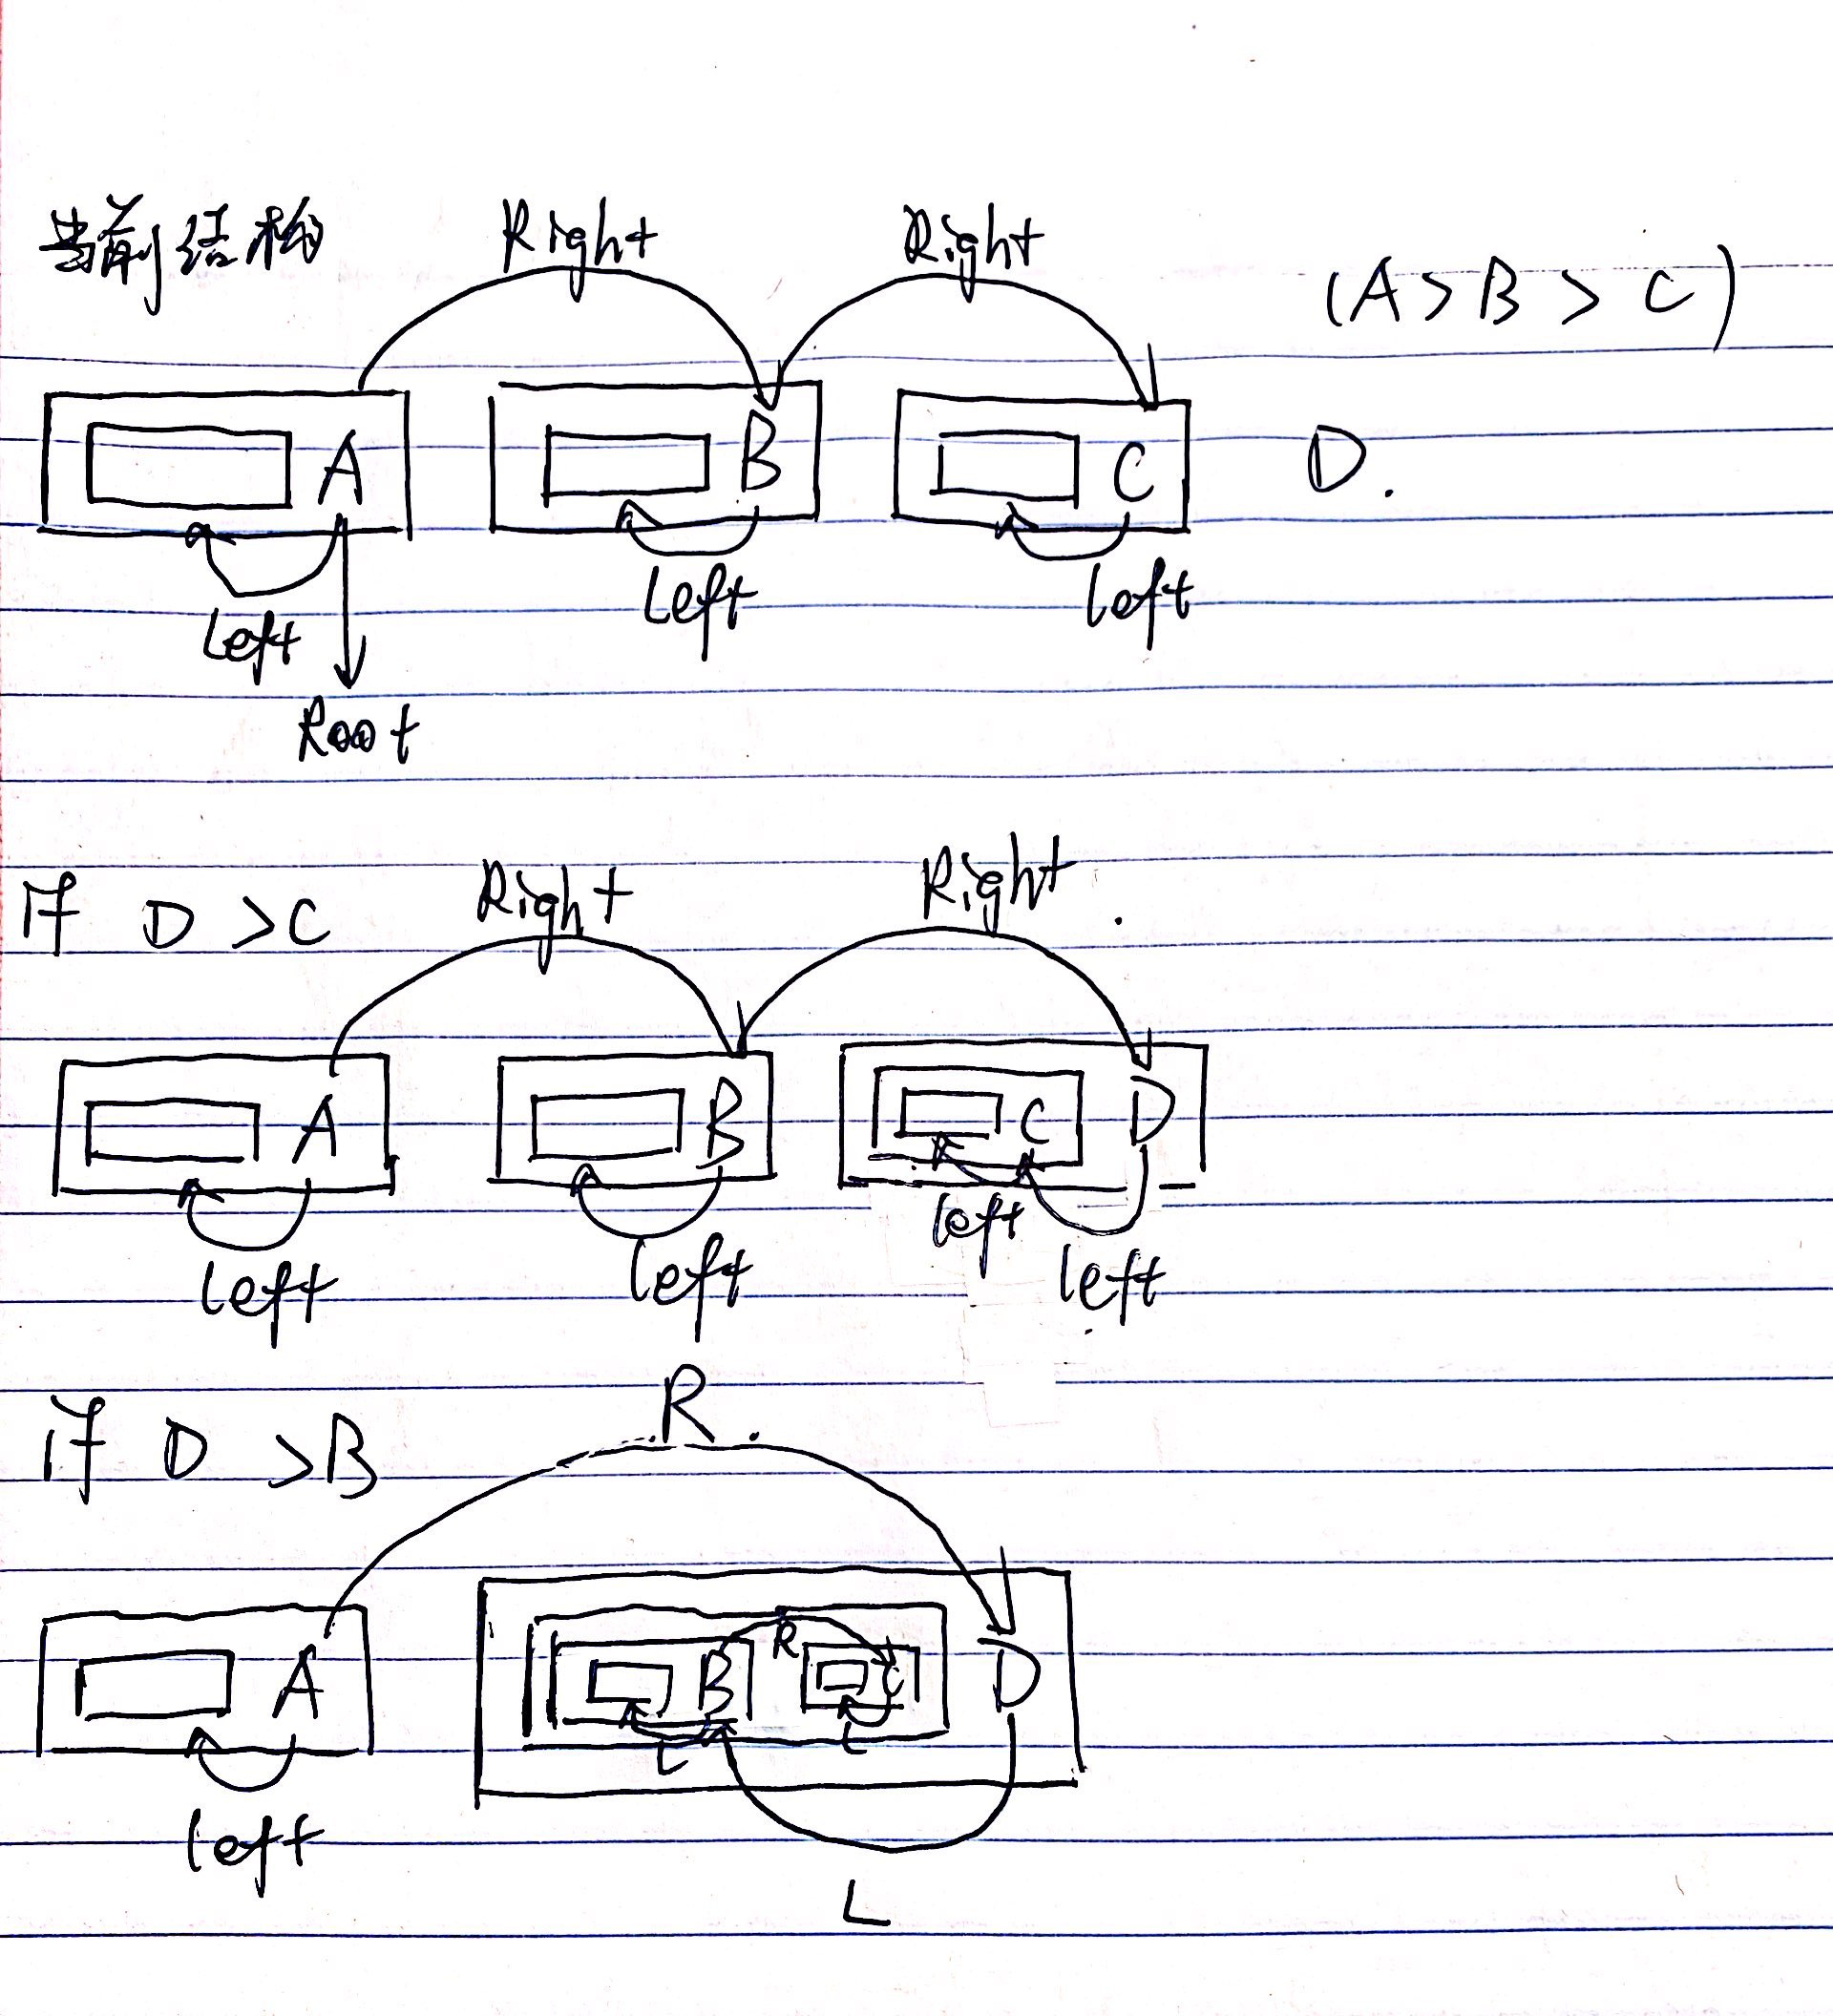 当前结构 Right Right (A > B > C)
A B C D.
Left Left Left
Root
If D > C Right Right.
A B C D
left left left left
If D > B R.
A B R C D
L L
left
L